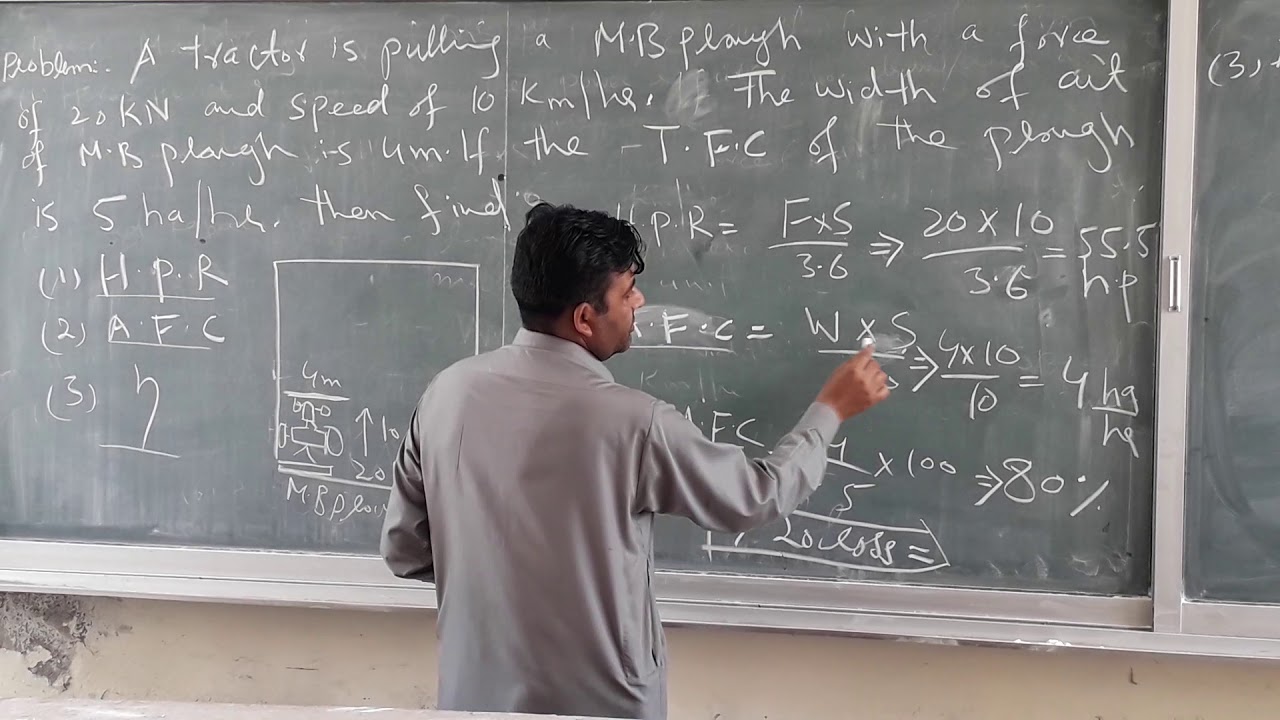 Problem:. A tractor is pulling a M.B plough with a force
of 20 KN and speed of 10 Km/hr. The width of cut
of M.B plough is 4m. If the T.F.C of the plough
is 5 ha/hr. then find
(1) H.P.R
(2) A.F.C
(3) η
4m
↑10
20
M.B plou
H.P.R = F×S/3.6 ⇒ 20×10/3.6 = 55.5 h.p
A.F.C = W×S/ ⇒ 4×10/10 = 4 ha/hr
A.F.C 4/5 ×100 ⇒ 80%
20% loss =
(3,